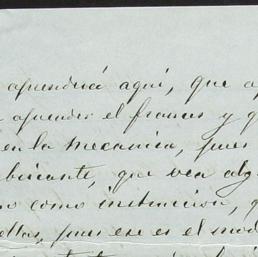 aprenderá aquí, que a
aprender el frances y q
en la mecanica, pues
bricante, que vea alg
no como instruccion, q
ellas, pues ese es el mod